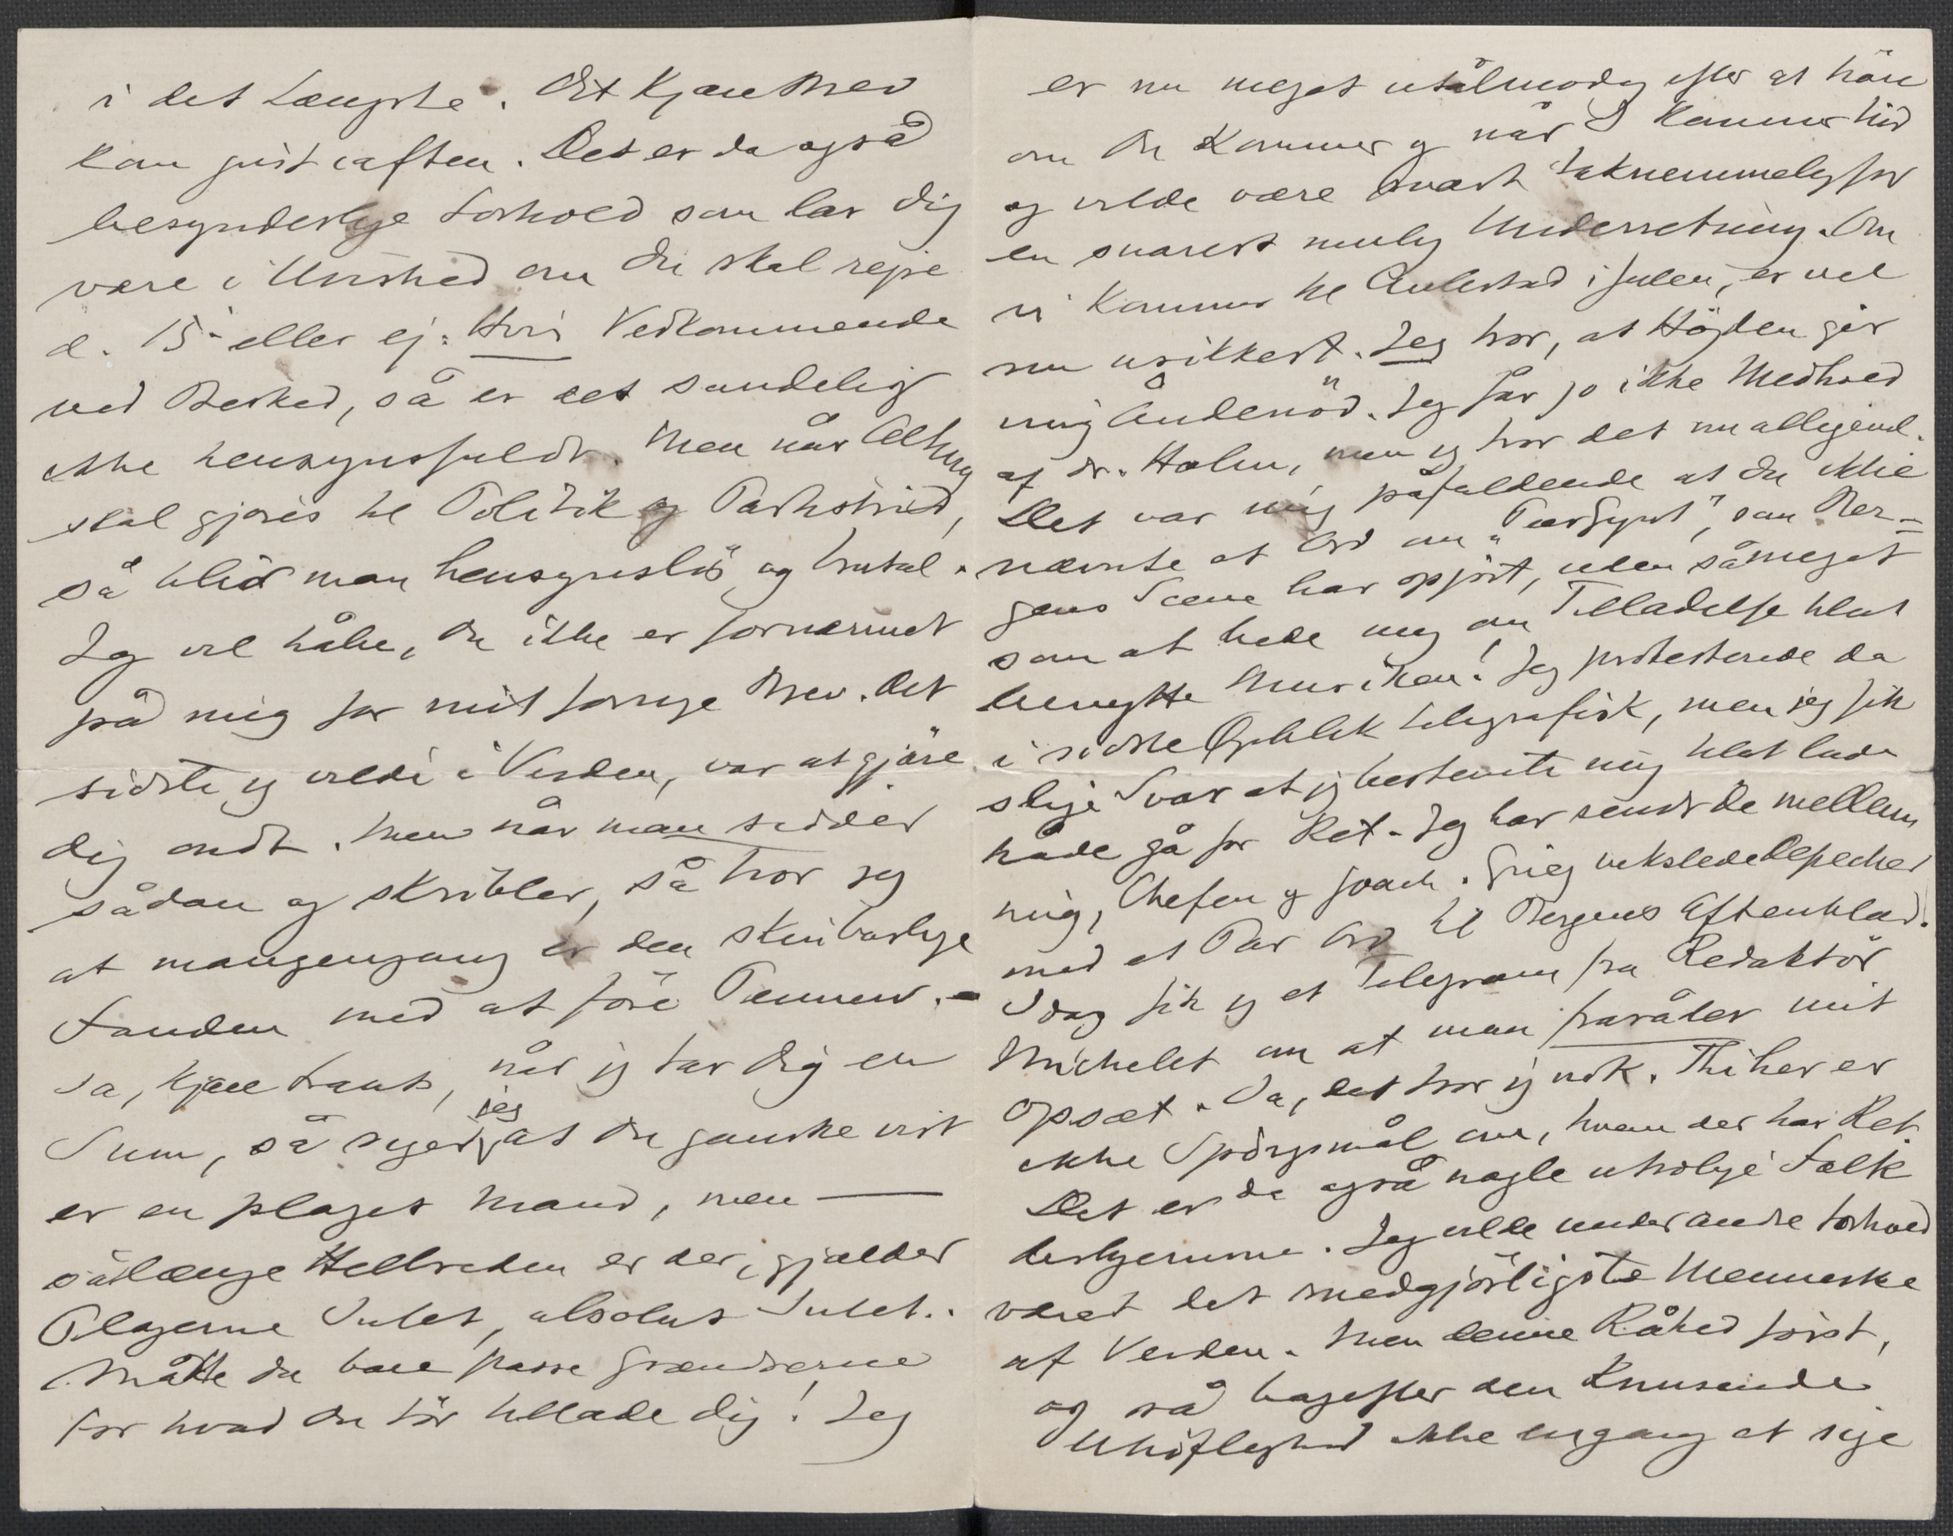 i det Længste. Dit kjære Brev
kom just iaften. Det er da også
besynderlige Forhold som lar dig
være i Uvished om Du skal rejse
d. 15de eller ej. Hvis Vedkommende
ved Besked, så er det sandelig
ikke hensynsfuldt. Men når Alting
skal gjøres til Politik og Partistrid,
så blir man hensynsløs og brutal.
Jeg vil håbe, Du ikke er fornærmet
på mig for mit forrige Brev. Det
sidste jeg vilde i Verden, var at gjøre
dig ondt. Men når man sidder
sådan og skribler, så tror jeg
at mangengang er den skinbarlige
Fanden med at føre Pennen. –
Ja, kjære Frants, når jeg tar dig en
Sum, så siger jeg at Du ganske vist
er en plaget Mand, men —
sålænge Helbreden er der, gjælder
Plagerne Intet, absolut Intet.
Måtte Du bare passe Grændserne
for hvad Du tør tillade dig! Jeg
er nu meget utålmodig efter at høre
om Du kommer og når I kommer hid
og vilde være svært taknemmelig for
en snarest mulig Underretning. Om
vi kommer til Aulestad i Julen, er vel
nu usikkert. Jeg tror, at Højden gir
mig Åndenød. Jeg får jo ikke Medhold
af Dr. Holm, men jeg tror det nu alligevel.
Det var mig påfaldende at Du ikke
nævnte et Ord om „Peer Gynt", som Ber-
gens Scene har opført, uden såmeget
som at bede mig om Tilladelse til at
benytte Musiken! Jeg protesterede da
i sidste Øjeblik telegrafisk, men jeg fik
slige Svar at jeg bestemte mig til at lade
Nåde gå for Ret. Jeg har sendt de mellem
mig, Chefen og Joach. Grieg vekslede Depecher
med et Par Ord til Bergens Aftenblad.
Idag fik jeg et Telegram fra Redaktør
Michelet om at man fraråder mit
Opsæt. Ja, det tror jeg nok. Thi her er
ikke Spørgsmål om, hvem der har Ret.
Det er da også nogle utrolige Folk
derhjemme. Jeg vilde under andre Forhold
været det medgjørligste Menneske
af Verden. Men denne Råhed først,
og så bagefter den knusende
Uhøflighed ikke engang at sige